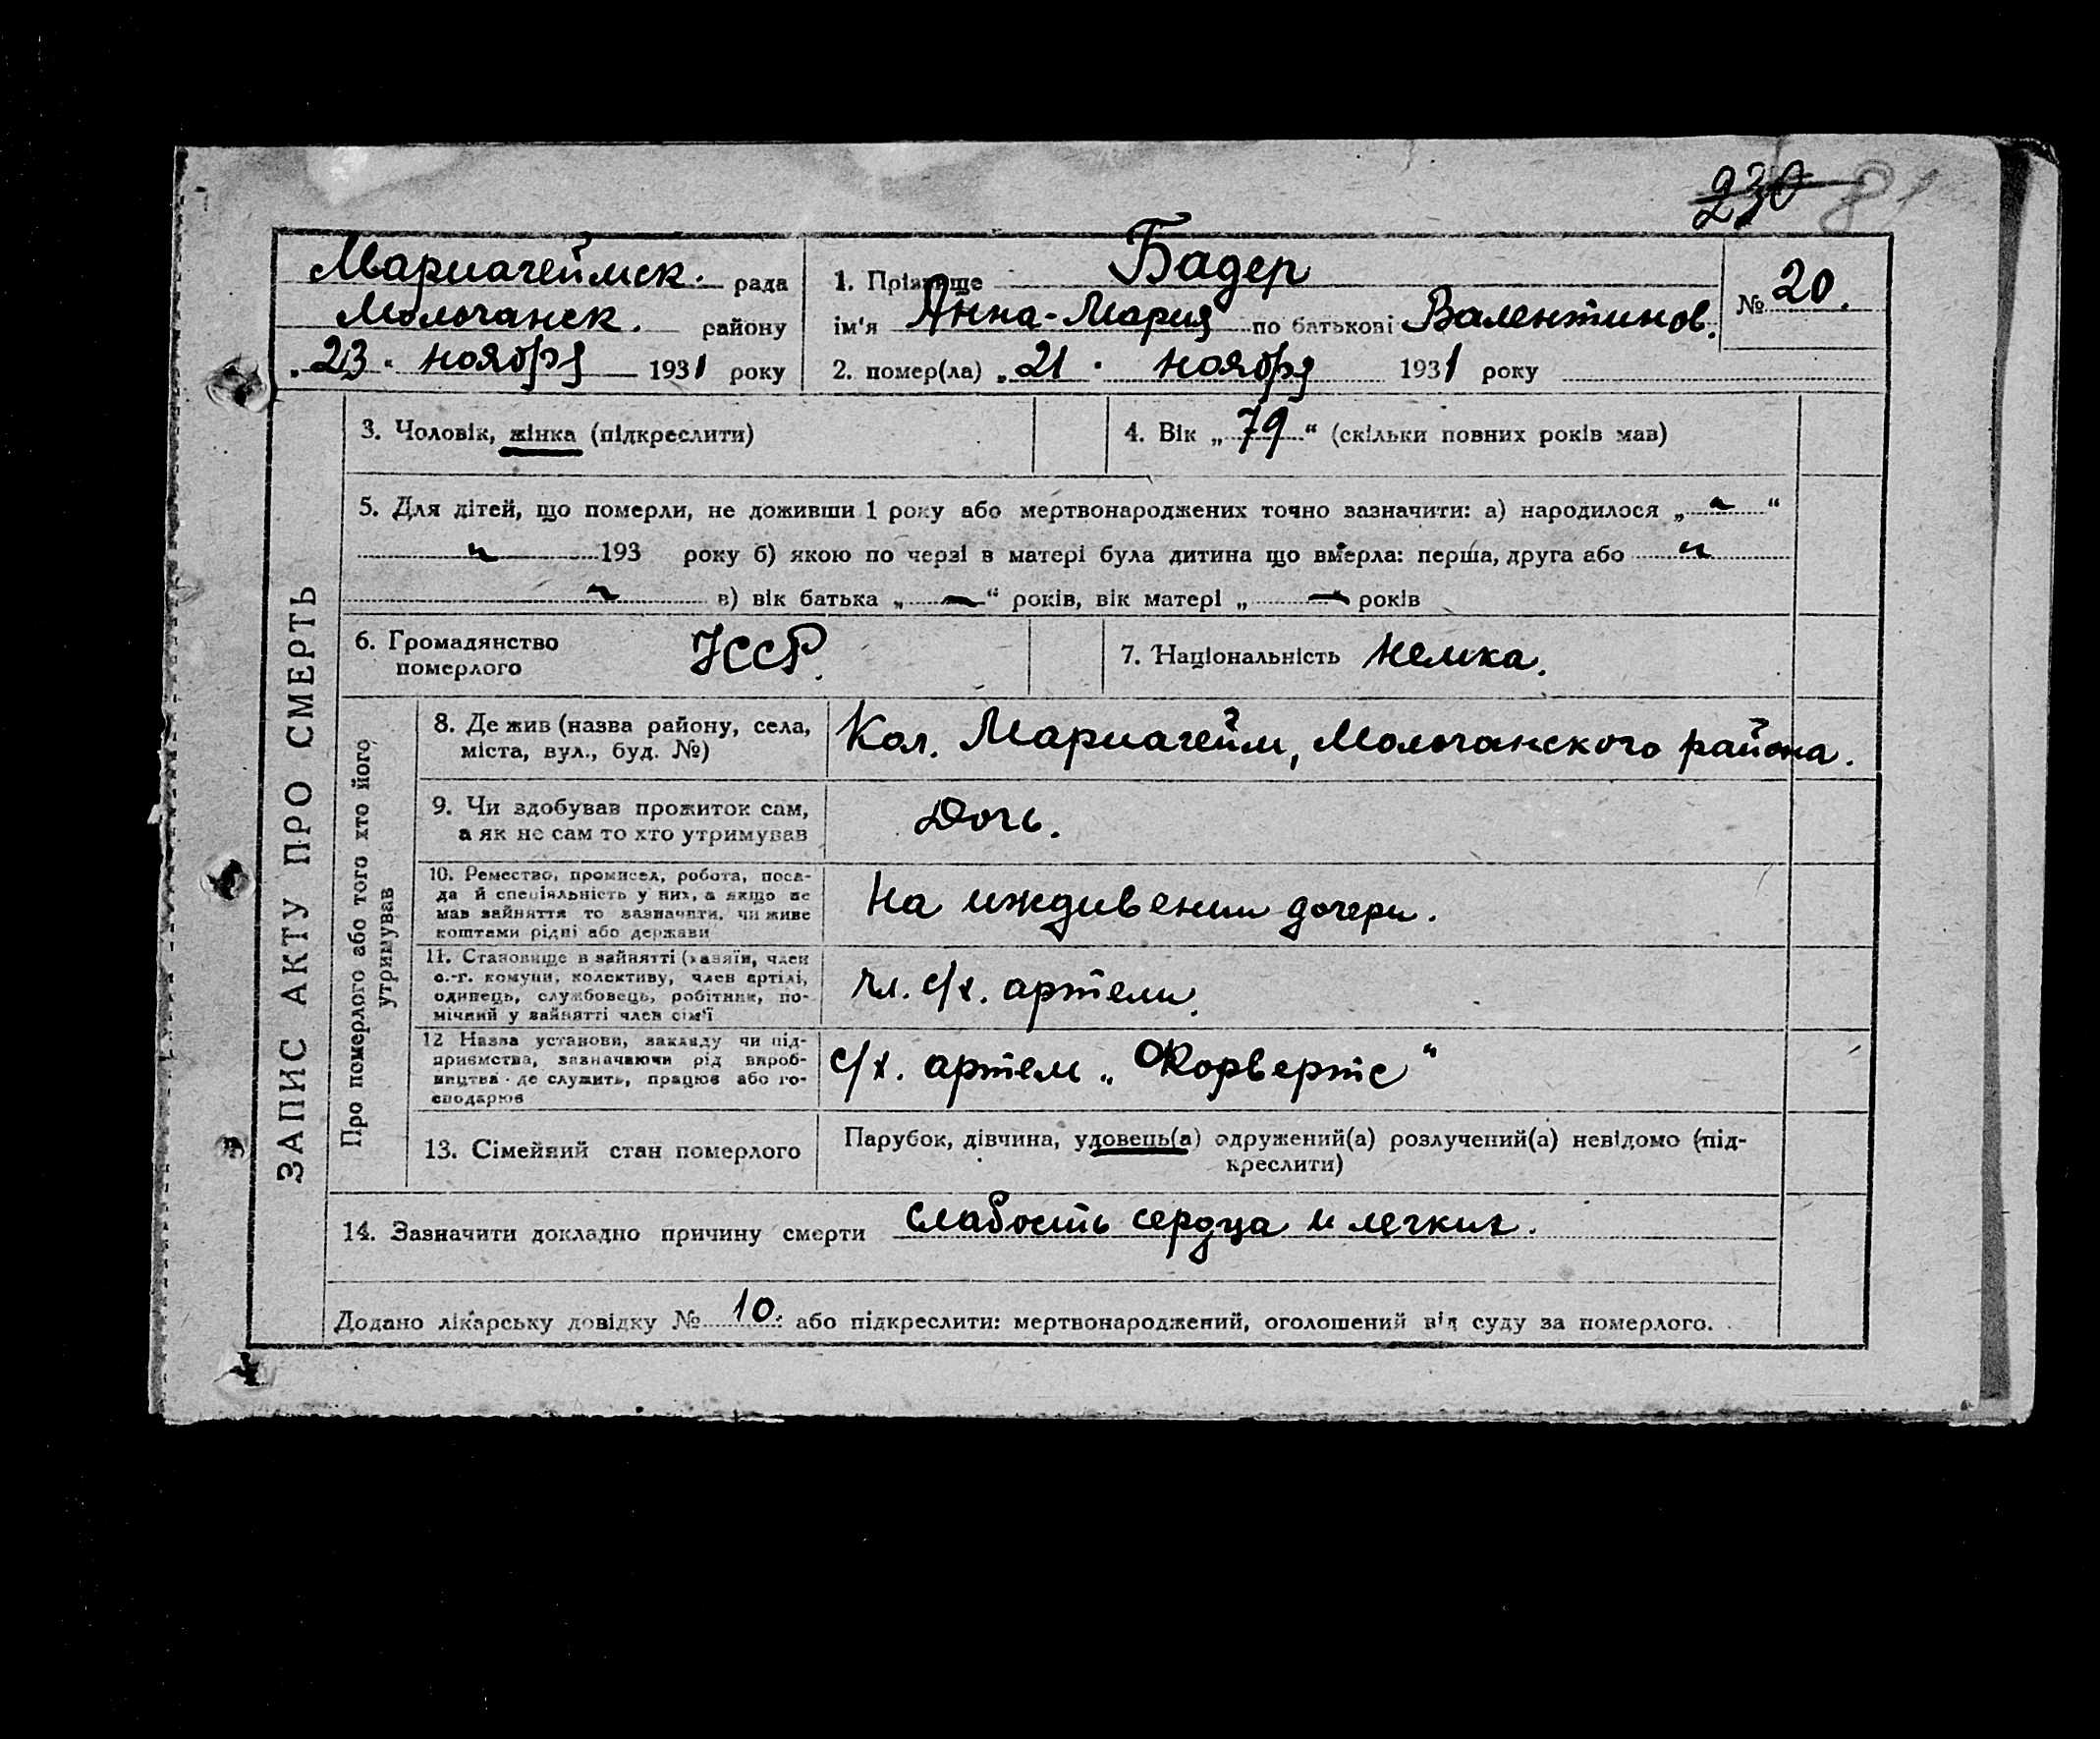 230 81
Мариагеймск. рада
Молочанск. району
„23" ноября 1931 року
1. Прізвище Бадер
ім'я Анна-Мария по батькові Валентинов.
№ 20.
2. помер(ла) „21" ноября 1931 року
ЗАПИС АКТУ ПРО СМЕРТЬ
3. Чоловік, жінка (підкреслити)
4. Вік „79" (скільки повних років мав)
5. Для дітей, що померли, не доживши 1 року або мертвонароджених точно зазначити: а) народилося „ "
" 193 року б) якою по черзі в матері була дитина що вмерла: перша, друга або "
в) вік батька „—" років, вік матері „—" років
6. Громадянство
померлого
УССР.
7. Національність немка.
Про померлого або того хто його
утримував
8. Де жив (назва району, села,
міста, вул., буд. №)
Кол. Мариагейм, Молочанского района.
9. Чи здобував прожиток сам,
а як не сам то хто утримував
Дочь.
10. Ремество, промисел, робота, поса-
да й спеціяльність у них, а якщо не
мав зайняття то зазначити, чи живе
коштами рідні або держави
На иждивении дочери.
11. Становище в зайнятті (хазяїн, член
с.-г. комуни, колективу, член артілі,
одинець, службовець, робітник, по-
мічний у зайнятті член сім'ї
чл. с/х. артели.
12 Назва установи, закладу чи під-
приємства, зазначаючи рід вироб-
ництва де служить, працює або го-
сподарює
с/х. артель „Форвертс"
13. Сімейний стан померлого
Парубок, дівчина, удовець(а) одружений(а) розлучений(а) невідомо (під-
креслити)
14. Зазначити докладно причину смерти слабость сердца и легких.
Додано лікарську довідку № 10. або підкреслити: мертвонароджений, оголошений від суду за померлого.